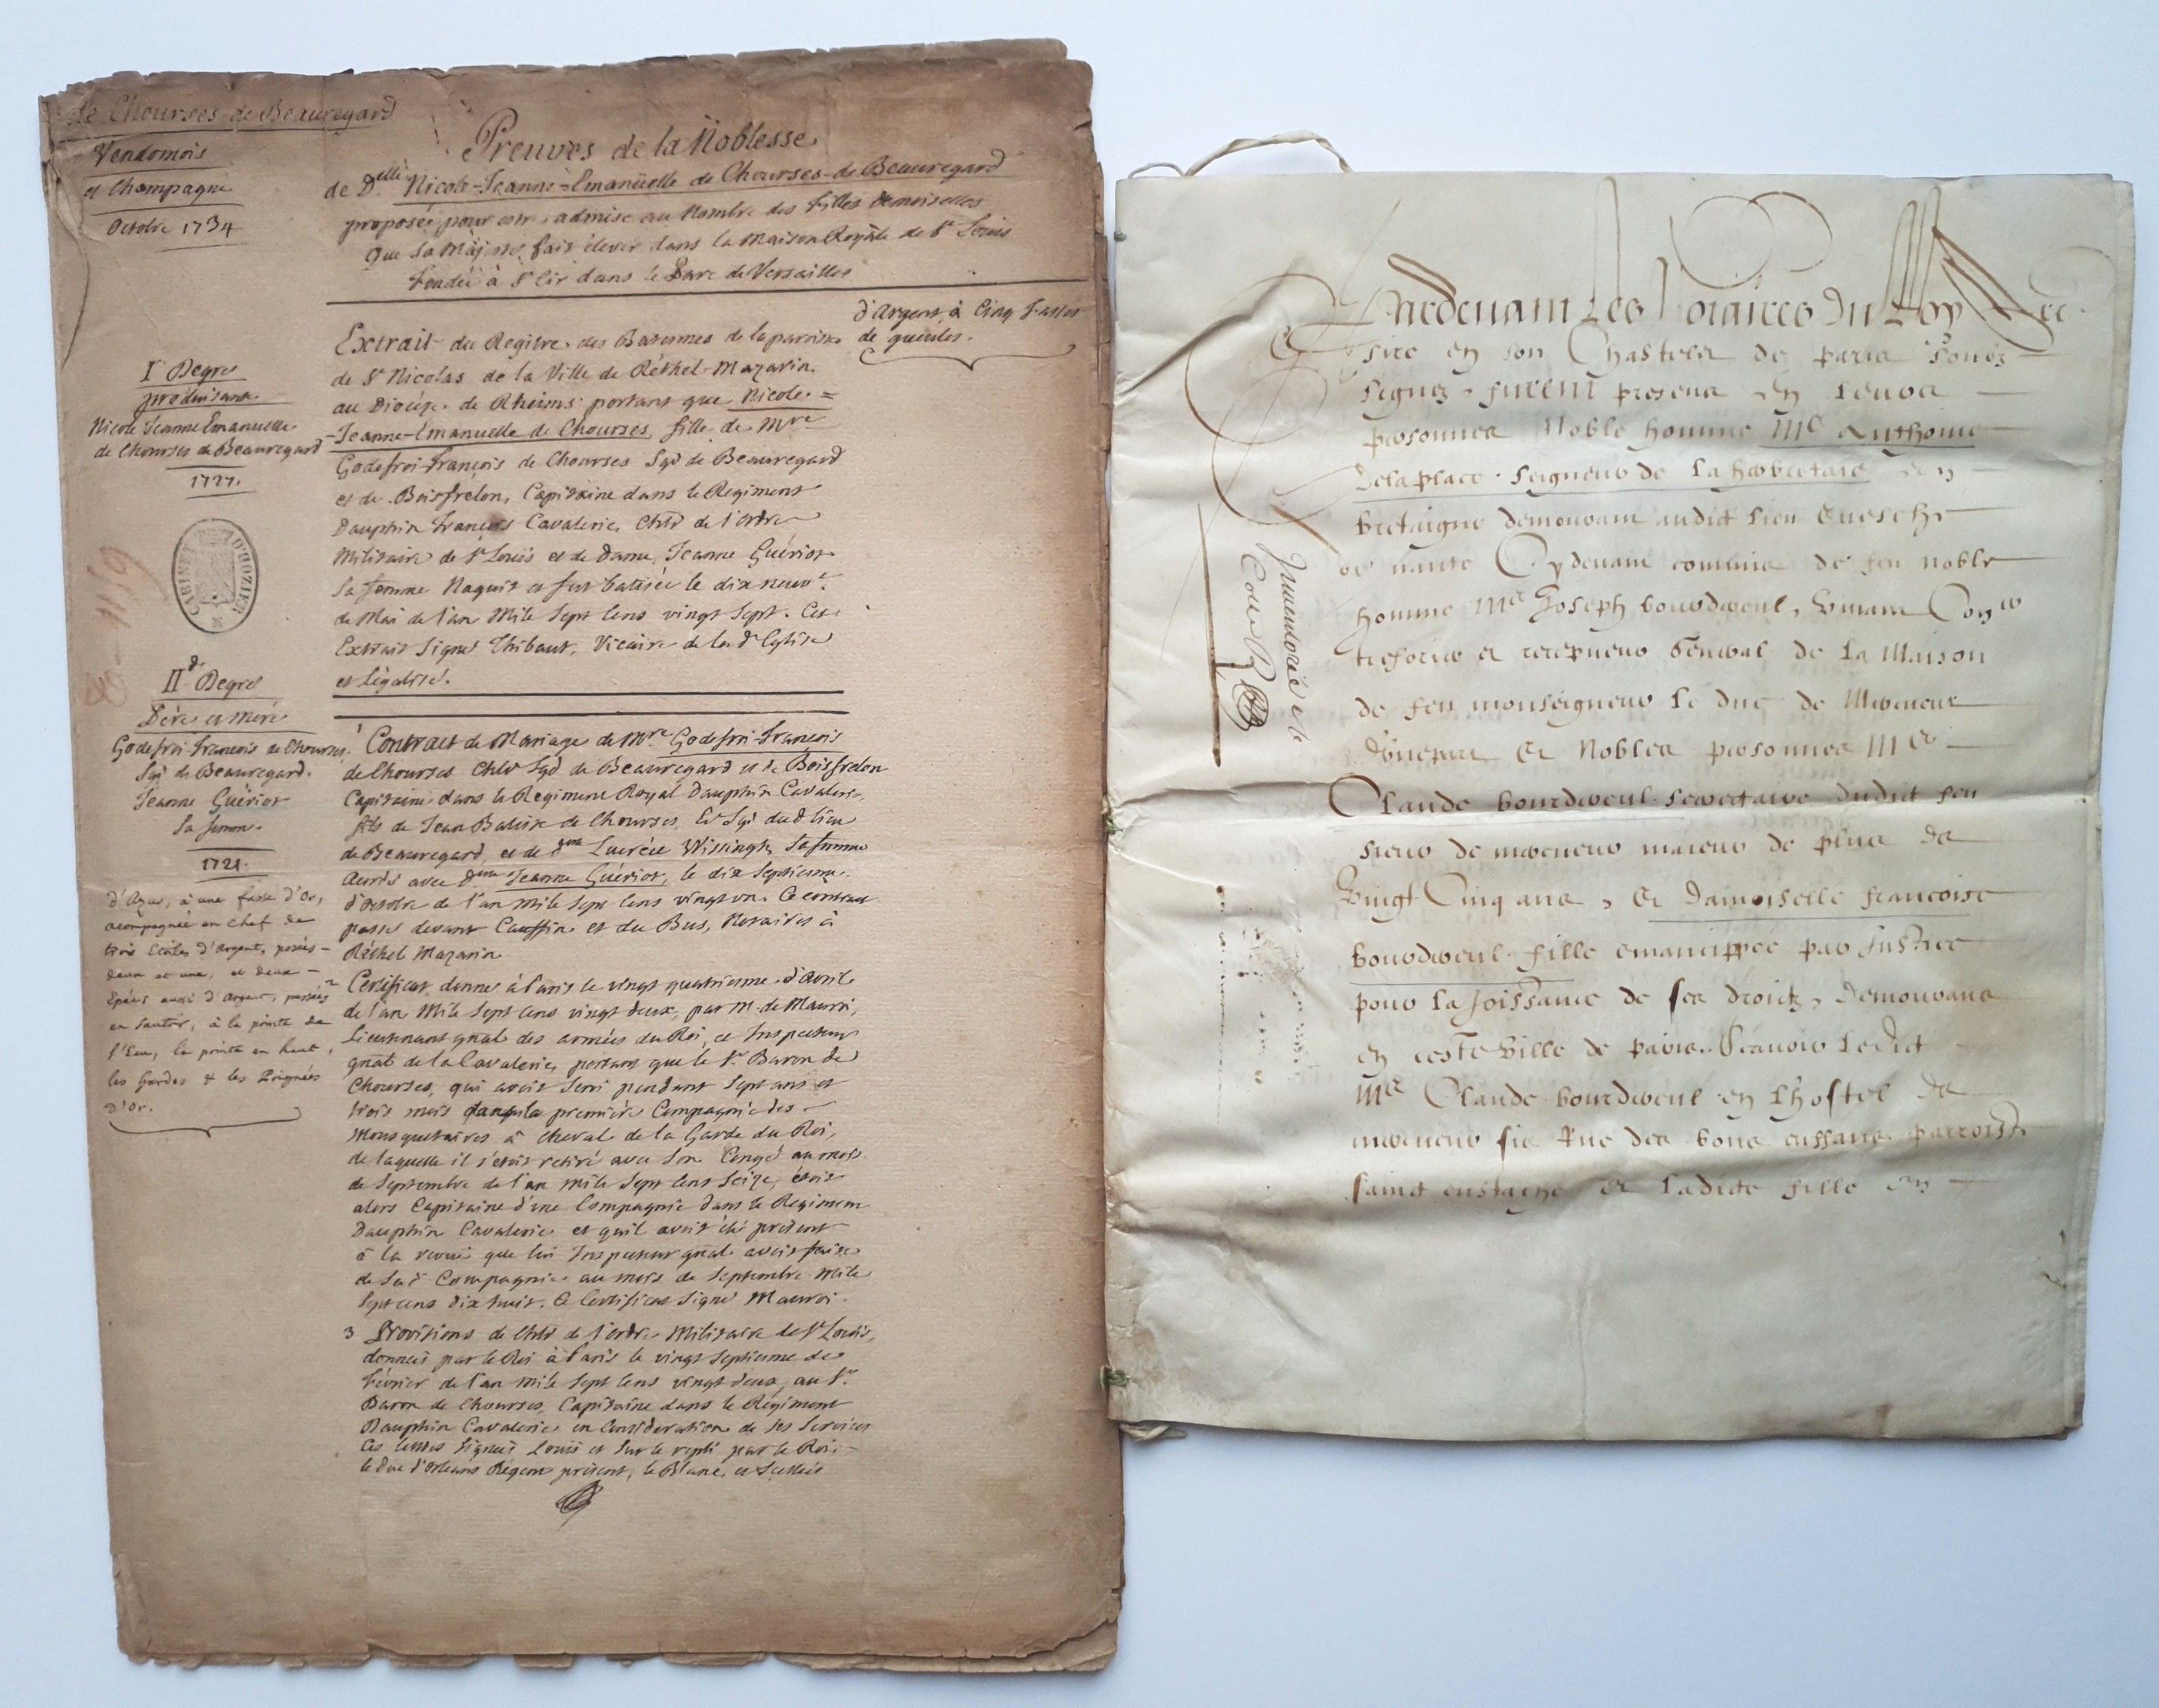 de Chourses de Beauregard
Vendomois
et Champagne
Octobre 1734
Preuves de la Noblesse
de D.elle Nicole-Jeanne-Emanüelle de Chourses-de Beauregard
proposée pour estre admise au Nombre des filles demoiselles
que Sa Majesté fait élever dans la Maison Royale de St Loüis
fondée à St Cir dans le Parc de Versailles
d'Argent, à Cinq Fasses
de gueules.
Ier Degré
produisante
Nicole Jeanne Emanuelle
de Chourses de Beauregard
1727.
Extrait du Regitre des Batemes de la paroisse
de St Nicolas de la Ville de Réthel-Mazarin
au Diocèse de Rheims portant que Nicole=
-Jeanne-Emanuelle de Chourses, fille de Mre
Godefroi-François de Chourses Sgr de Beauregard
et de Boisfrelon, Capitaine dans le Regiment
Dauphin François Cavalerie, Chlr de l'ordre
Militaire de St Louis et de dame Jeanne Guériot
sa femme Naquit et fut batisée le dix neuve
de Mai de l'an Mile Sept Cens vingt Sept. Cet
Extrait Signé Thibaut, Vicaire de lad. Eglise
et légalisé.
CABINET D'HOZIER
IId Degré
Père et mère
Godefroi François de Chourses
Sgr de Beauregard.
Jeanne Guériot
sa femme.
1721.
d'Azur, à une fasse d'Or,
acompagnée en chef de
trois Etoiles d'Argent, posées
deux et une, et deux
Epées aussi d'Argent, passées
en sautoir, à la pointe de
l'Ecu, la pointe en haut,
les Gardes & les Poignées
d'Or.
1 Contract de Mariage de Mre Godefroi-François
de Chourses Chlr Sgr de Beauregard et de Boisfrelon
Capitaine dans le Regiment Royal Dauphin Cavalerie,
fils de Jean Batiste de Chourses, Er Sgr dud. lieu
de Beauregard, et de dme Lucrèce Wissingh, Sa femme
acordé avec dme Jeanne Guériot, le dix Septieme
d'Octobre de l'an mile Sept Cens vingt un. Ce contract
passé devant Cauffin et du Bus, Notaires à
Réthel Mazarin.
2 Certificat donné à Paris le vingt quatrieme d'Avril
de l'an Mile Sept Cens vingt deux, par M. de Mauroi,
Lieutenant gnal des armées du Roi, et Inspecteur
gnal de la Cavalerie, portant que le Sr Baron de
Chourses, qui avoit Servi pendant Sept ans et
trois mois dans la première Compagnie des
Mousquetaires à Cheval de la Garde du Roi,
de laquelle il s'étoit retiré avec Son Congé au mois
de Septembre de l'an mile Sept Cens Seize, étoit
alors Capitaine d'une Compagnie dans le Regiment
Dauphin Cavalerie et qu'il avoit été présent
à la revuë que lui Inspecteur gnal avoit faite
de Sad. Compagnie au mois de Septembre Mile
Sept cens dix huit. Ce Certificat Signé Mauroi.
3 Provisions de Chlr de l'ordre Militaire de St Loüis,
données par le Roi à Paris le vingt Septieme de
Février de l'an mile Sept Cens vingt deux, au Sr
Baron de Chourses, Capitaine dans le Régiment
Dauphin Cavalerie en Consideration de ses Services
Ces lettres Signées Louis et sur le repli par le Roi,
le Duc d'Orleans Régent présent, le Blanc, et Scellées
Pardevant Les Notaires du Roy
sire en son Chastelet de paris soubz
signez furent presens en leurs
personnes Noble homme Me Anthoine
Delaplace Seigneur de la
bretaigne demourant audict lieu Evesché
de nante Cydevant commis de feu noble
homme Me Joseph bourdereul, vivant Coner
tresorier et recepveur General de la Maison
de feu monseigneur le duc de Mercueur
d'une part Et Nobles personnes Me
Claude bourdereul secretaire dudict feu
sieur de mercueur maieur de plus de
Vingt Cinq ans, Et damoiselle francoise
bourdereul fille emancippee par Justice
pour la Joissance de ses droictz, demourans
en ceste Ville de paris, Scavoir ledict
Me Claude bourdereul en l'hostel de
mercueur sis Rue des bons enffans parroisse
sainct eustache et ladicte fille en